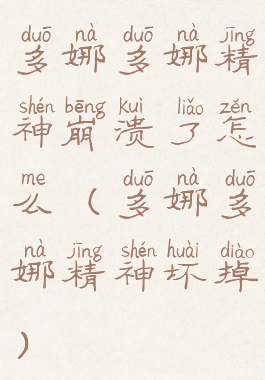 duō nà duō nà jīng
多娜多娜精
shén bēng kuì liǎo zěn
神崩溃了怎
me duō nà duō
么(多娜多
nà jīng shén huài diào
娜精神坏掉
)